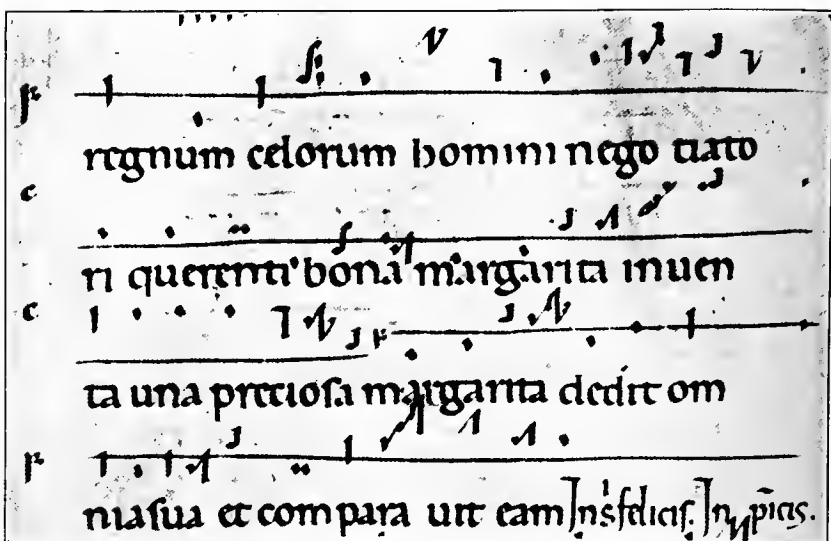 regnum celorum homini nego tiato
ri querenti bona margarita inuen
ta una preciosa margarita dedit om
nia sua et compara uit eam Ins felicis. In